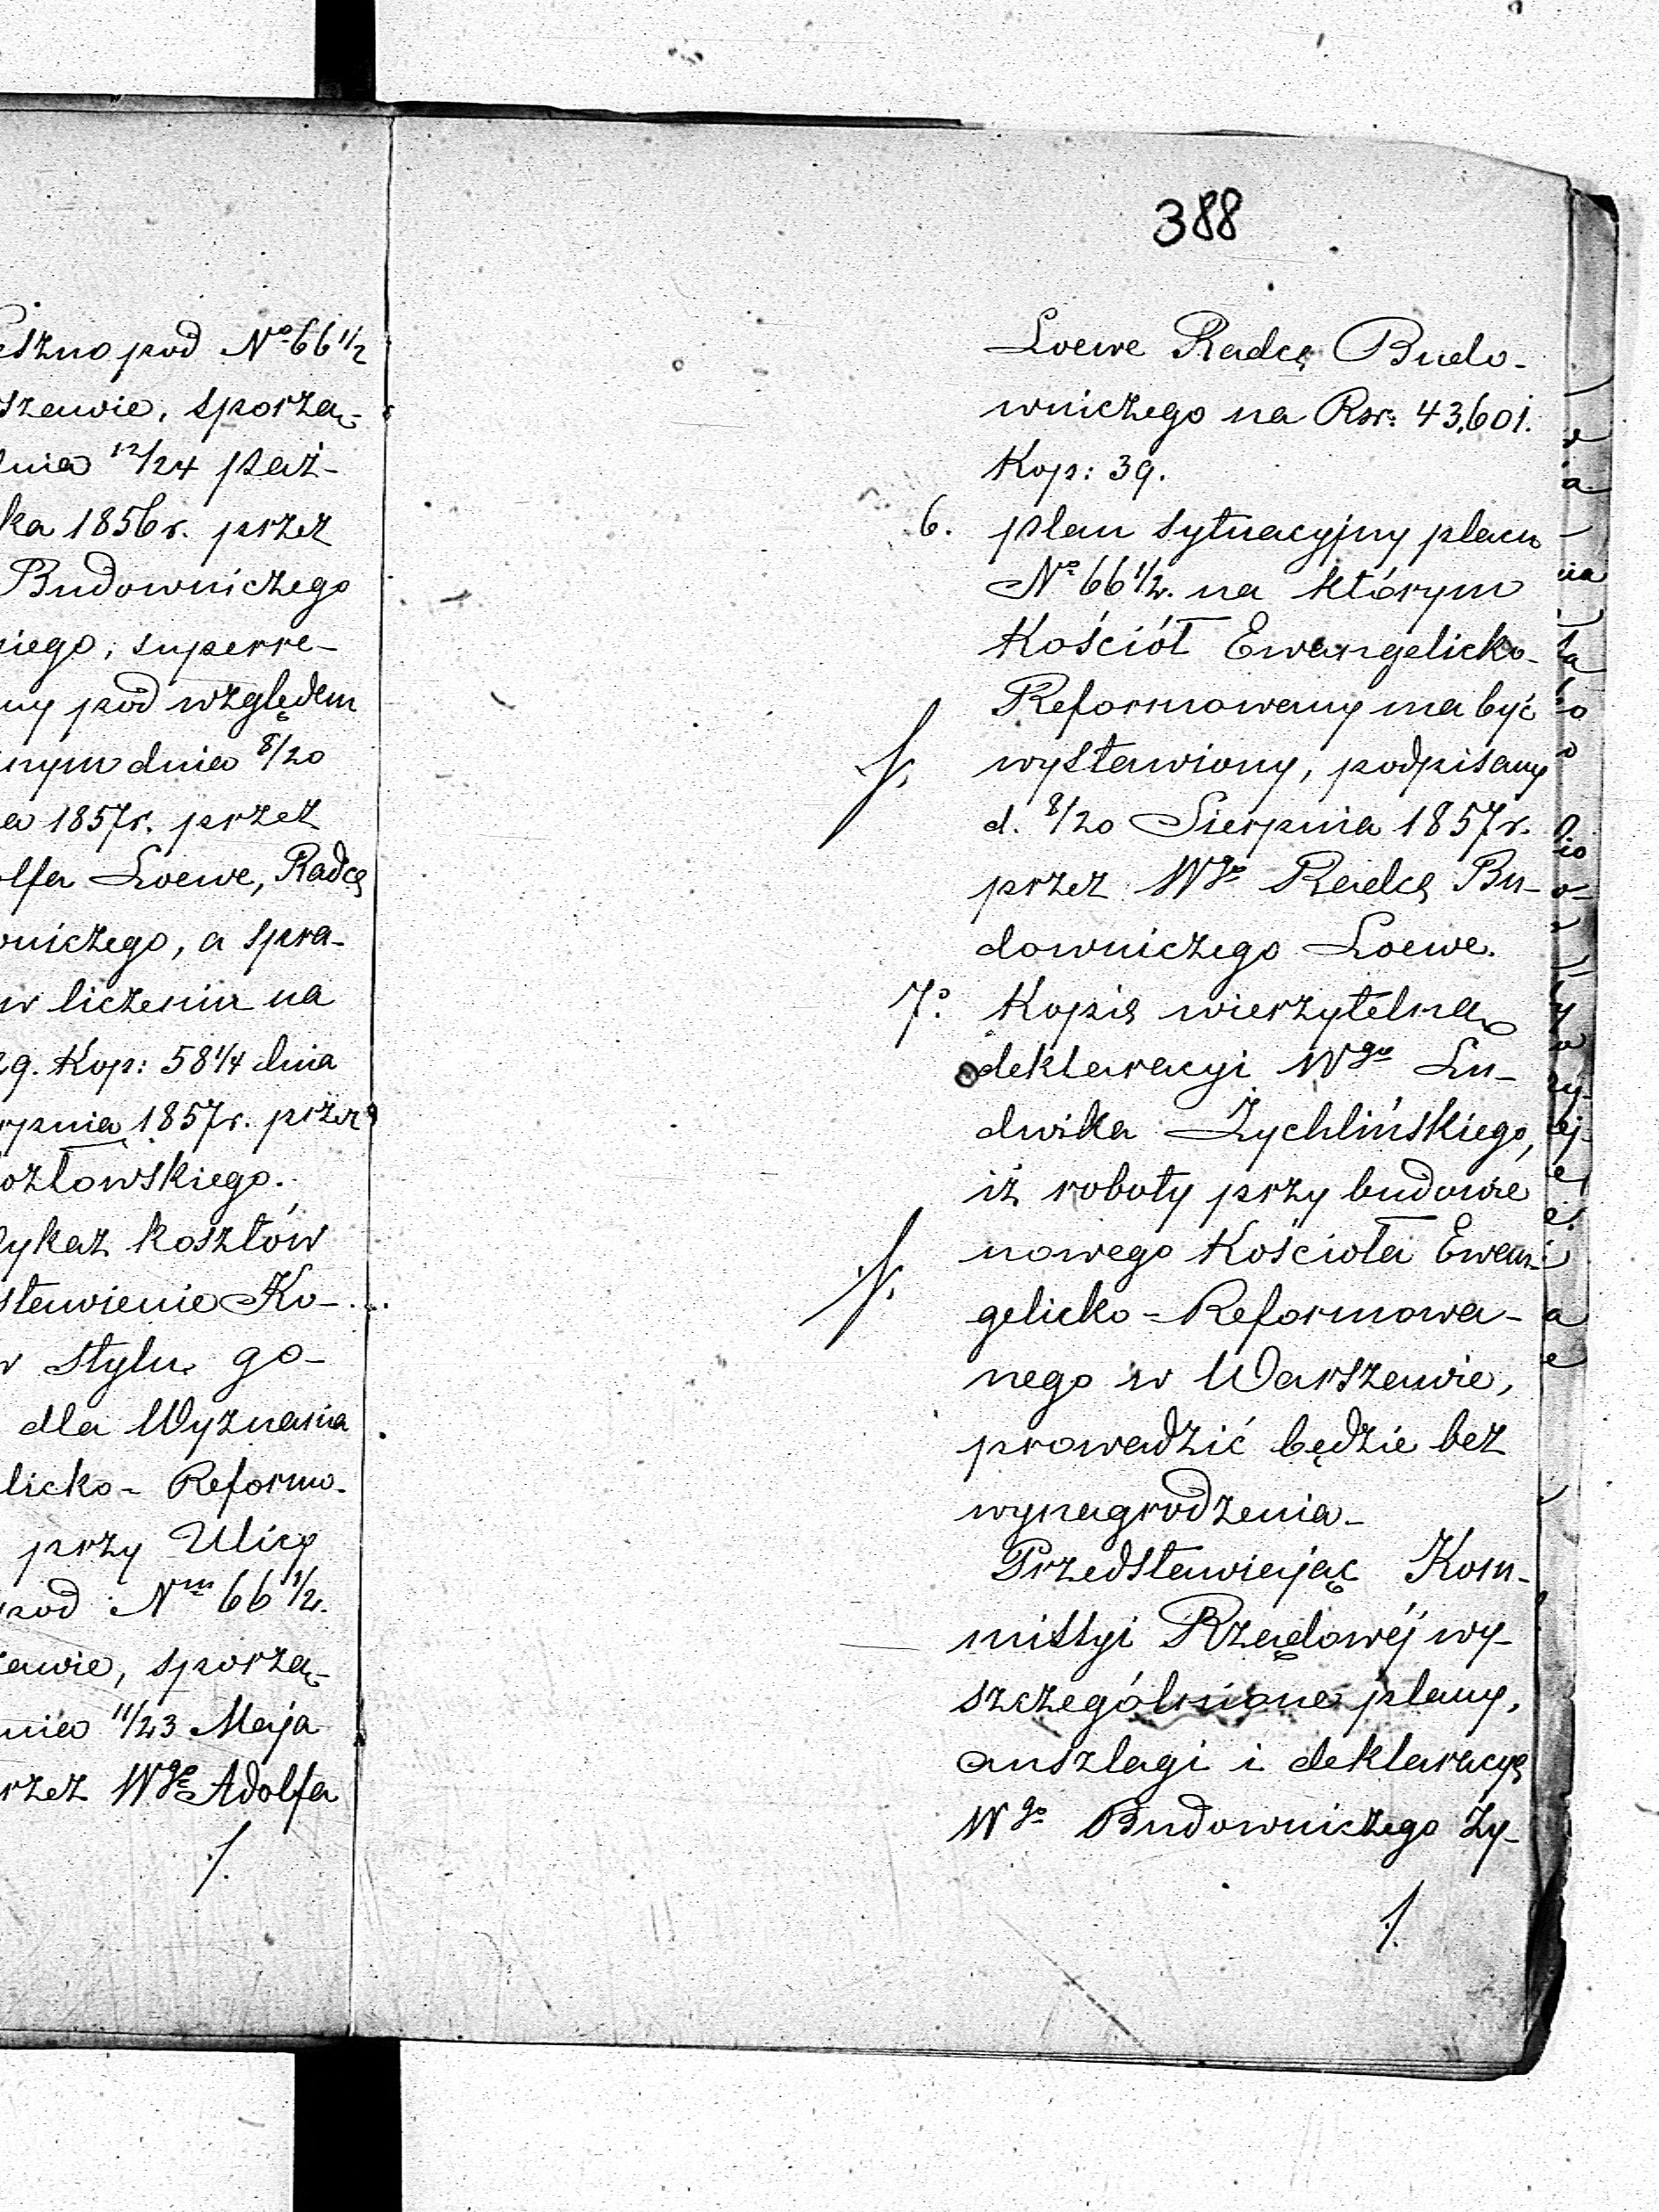 szno pod Nº 66 1/2
szawie, sporzą-
dnia 12/24 Paź-
ka 1856 r. przez
Budowniczego
kiego, superre-
ny pod względem
nym dnia 8/20
a 1857 r. przez
olfa Loewe, Radcę
wniczego, a spra-
w liczeniu na
29. Kop: 58 1/4 dnia
rpnia 1857 r. przez
ozłowskiego.
ykaz kosztów
stawienie Ko-
w stylu go-
dla Wyznania
licko- Reformo-
przy Ulicy
pod Nm 66 1/2.
zawie, sporzą-
nia 11/23 Maja
rzez Wgo Adolfa
./.
388
Loewe Radcę Budo-
wniczego na Rsr: 43,601.
Kop: 39.
6. plan sytuacyjny placu
Nº 66 1/2. na którym
Kościół Ewangelicko-
Reformowany ma być
wystawiony, podpisany
d. 8/20 Sierpnia 1857 r.
przez Wgo Radcę Bu-
downiczego Loewe.
7º Kopię wierzytelną
deklaracyi Wgo Lu-
dwika Żychlińskiego,
iż roboty przy budowie
nowego Kościoła Ewan-
gelicko=Reformowa-
nego w Warszawie,
prowadzić będzie bez
wynagrodzenia-
Przedstawiając Kom-
missyi Rządowéj wy-
szczególnione plany,
anszlagi i deklaracyę
Wgo Budowniczego Ży-
./.